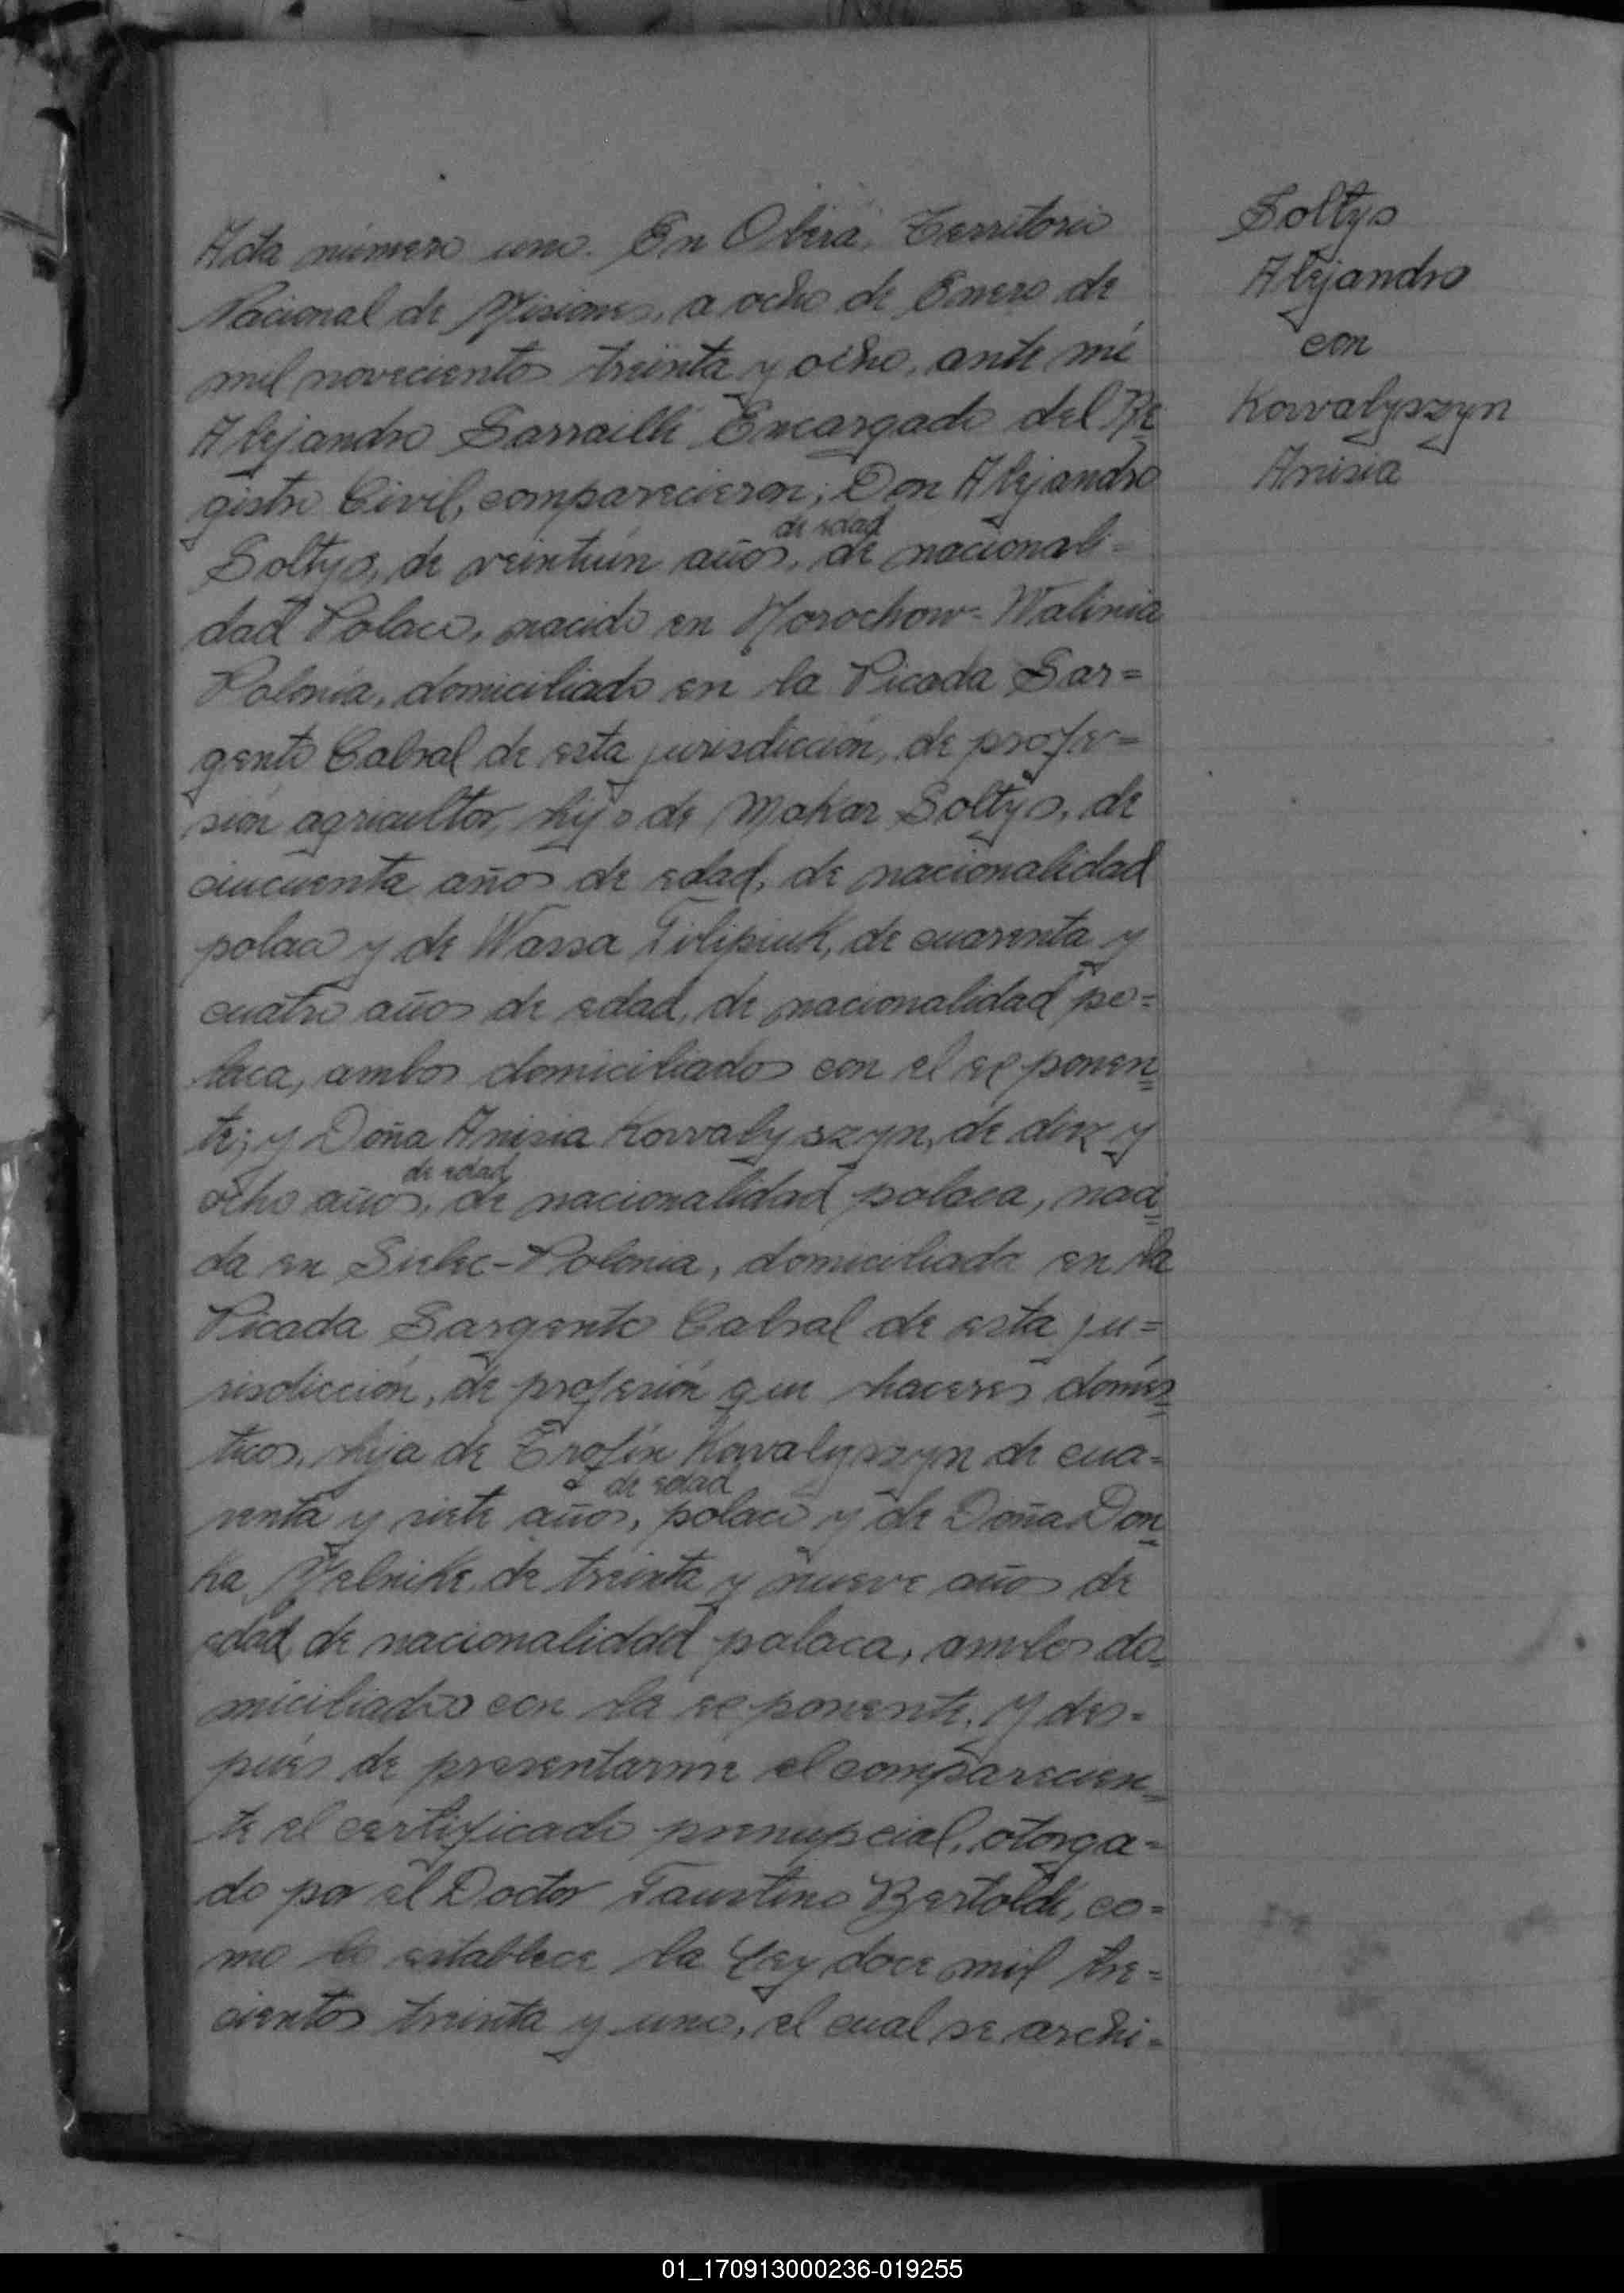 Acta número uno. En Oberá, Territorio
Nacional de Misiones, a ocho de Enero de
mil novecientos treinta y ocho, ante mí
Alejandro Sarraillé Encargado del Re
gistro Civil, comparecieron; Don Alejandro
de edad
Soltys, de veintiún años, de nacionali=
dad Polaco, nacido en Horochow-Walinia
Polonia, domiciliado en la Picada Sar=
gento Cabral de esta jurisdicción, de profe=
sión agricultor, hijo de Makar Soltys, de
cincuenta años de edad, de nacionalidad
polaco y de Wassa Filipiuk, de cuarenta y
cuatro años de edad, de nacionalidad po=
laca, ambos domiciliados con el exponen
te; y Doña Anisia Kowalyszyn, de diez y
de edad
ocho años, de nacionalidad polaca, naci
da en Sielec-Polonia, domiciliada en la
Picada Sargento Cabral de esta ju=
risdicción, de profesión que haceres domés
ticos, hija de Trofin Kowalyszyn de cua=
de edad
renta y siete años, polaco y de Doña Don
ka Melnike, de treinta y nueve años de
edad, de nacionalidad polaca, ambos do
miciliados con la exponente. Y des=
pués de presentarme el comparecien
te el certificado prenupcial, otorga=
do por el Doctor Faustino Bertoldi, co=
mo lo establece la Ley doce mil tre=
cientos treinta y uno, el cual se archi=
Soltys
Alejandro
con
Kowalyszyn
Anisia
01_170913000236-019255